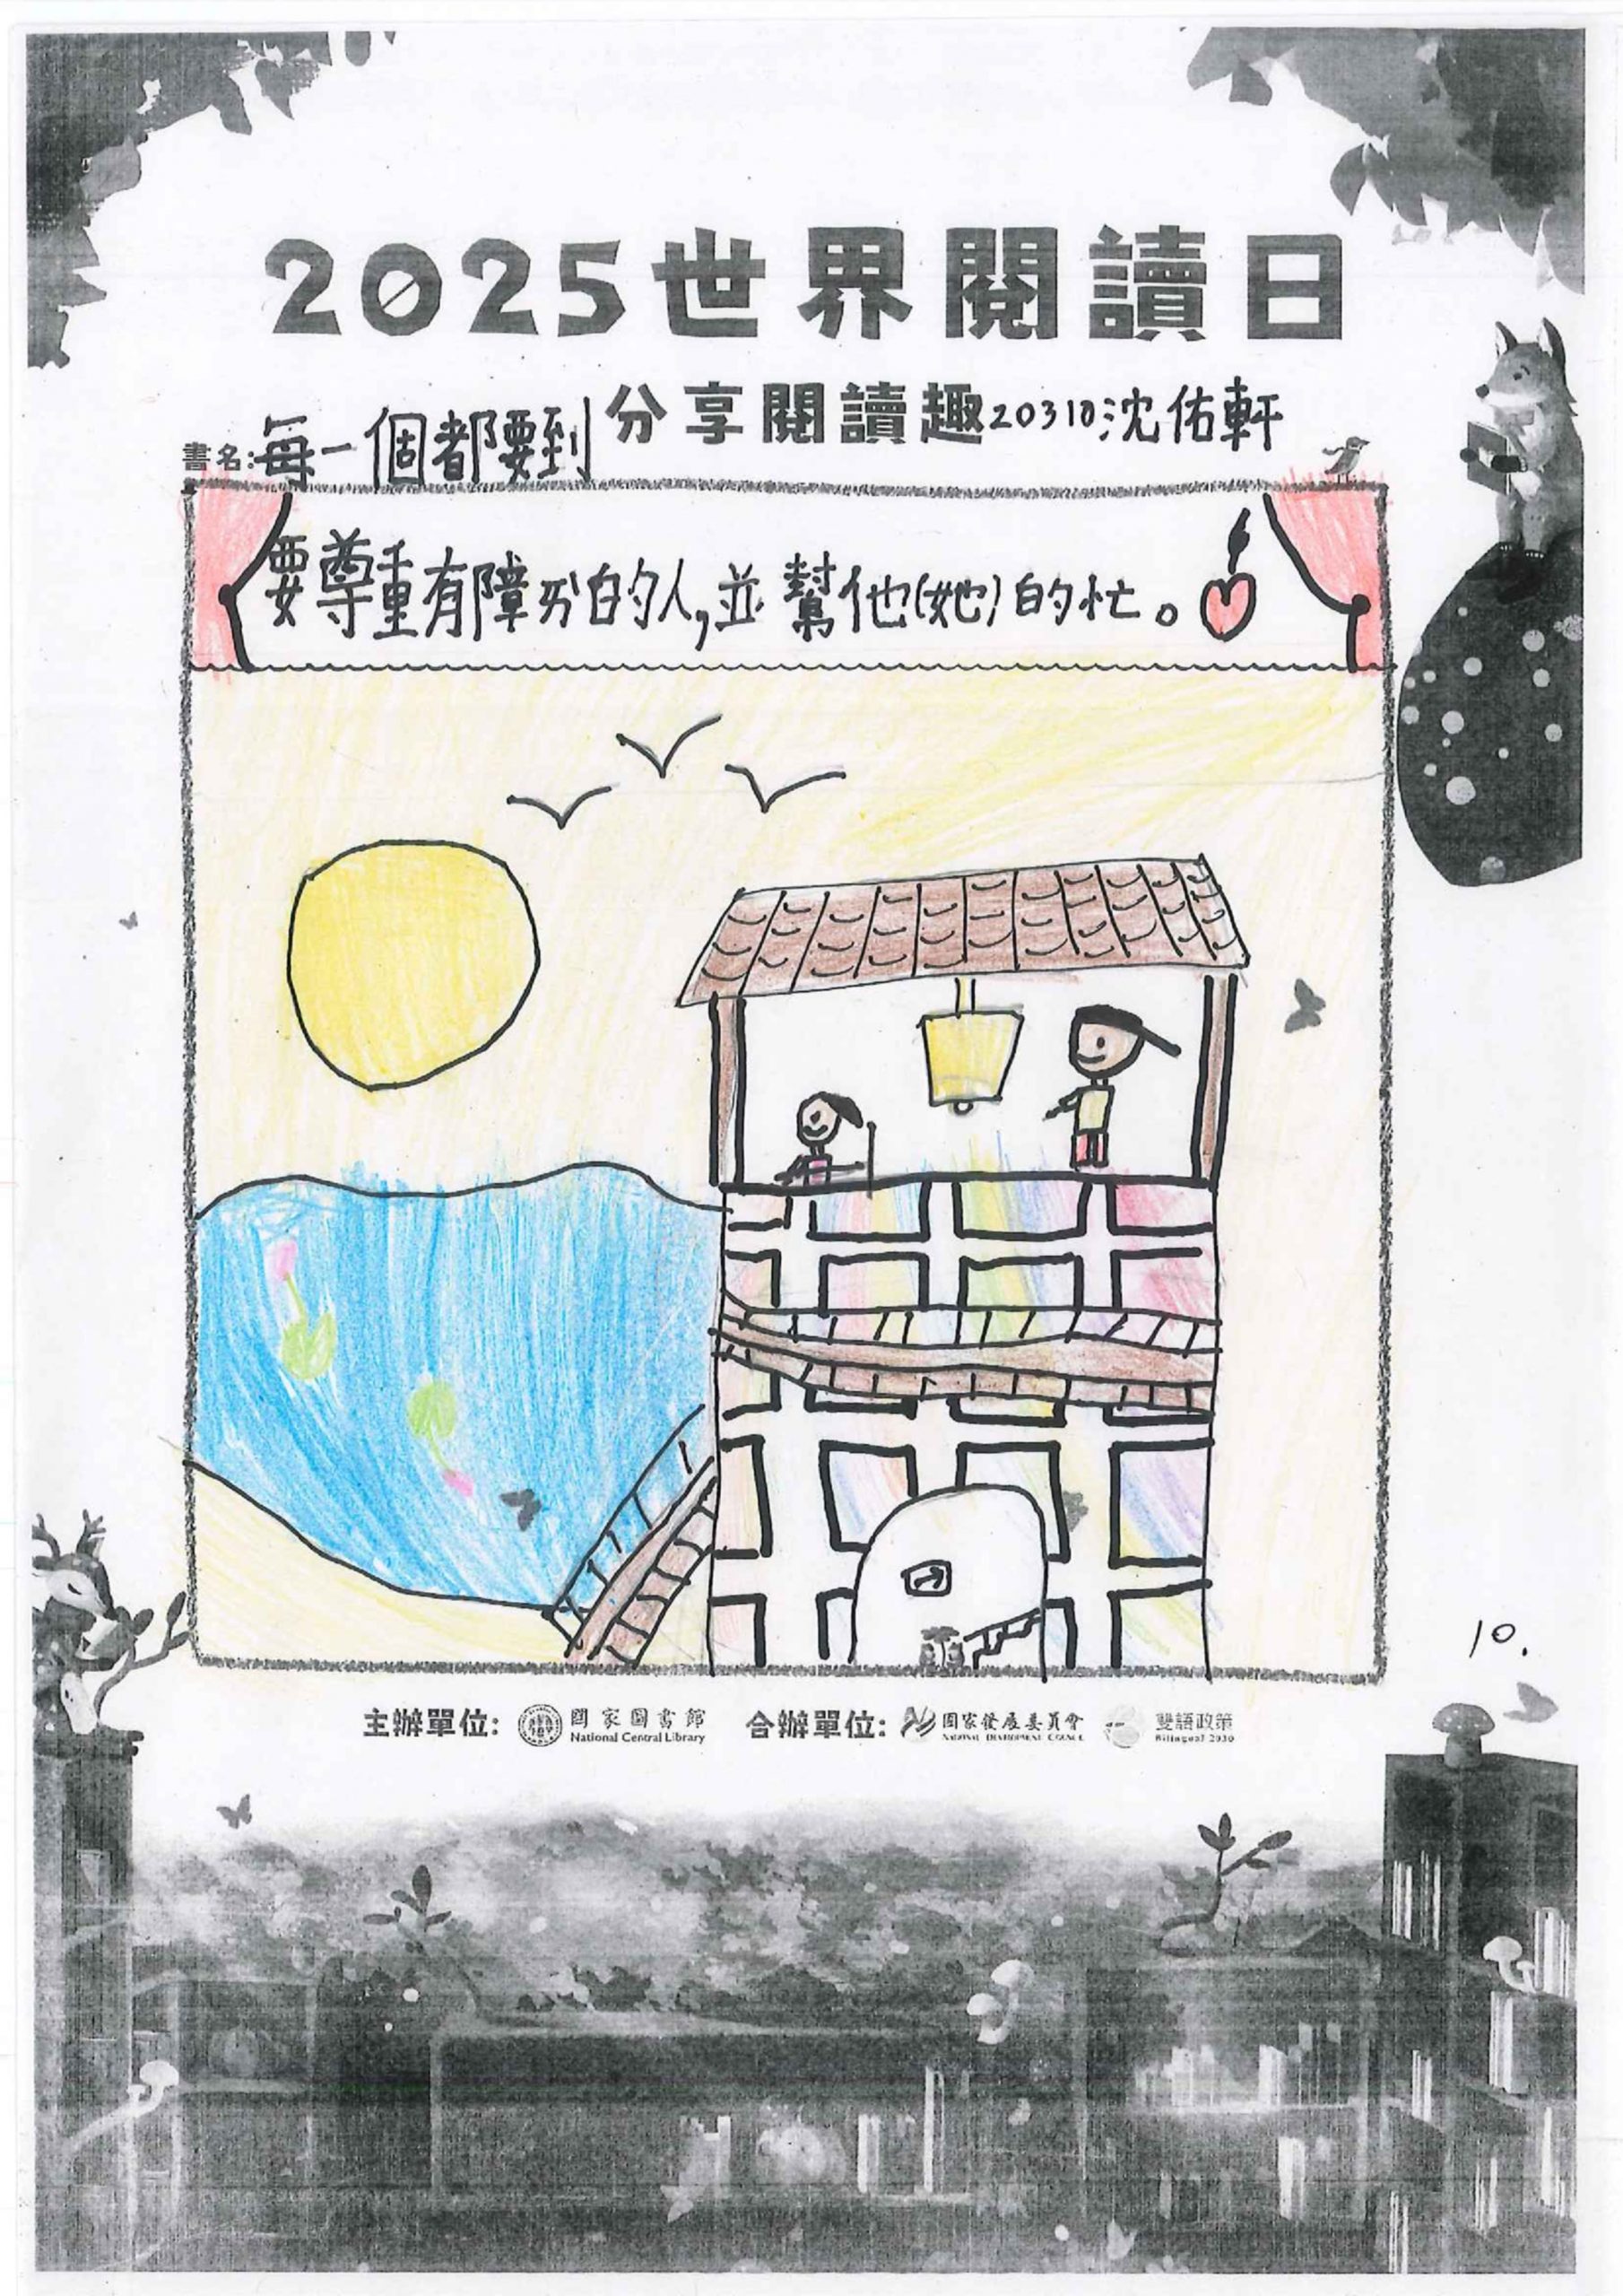 2025世界閱讀日
分享閱讀趣 20310 沈佑軒
書名:每一個都要到
要尊重有障ㄞˋ的人,並幫他(她)的忙。
10.
主辦單位: 國家圖書館 National Central Library 合辦單位: 國家發展委員會 NATIONAL DEVELOPMENT COUNCIL 雙語政策 Bilingual 2030